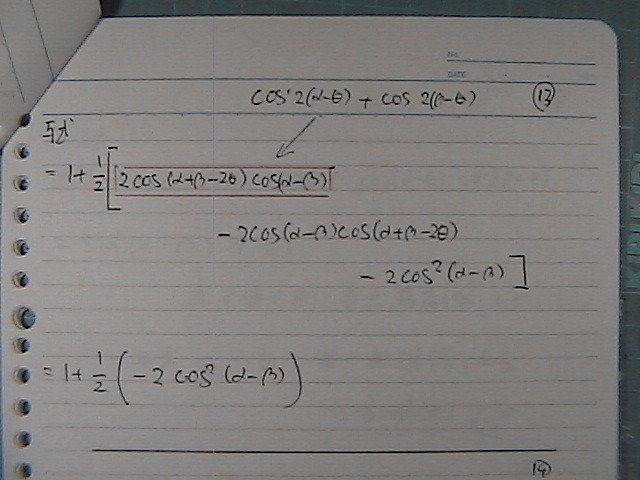 No.
DATE
cos 2(α-θ) + cos 2(β-θ) ⑬
与式
= 1 + 1/2 [ 2cos(α+β-2θ) cos(α-β)
- 2cos(α-β)cos(α+β-2θ)
- 2cos²(α-β) ]
= 1 + 1/2 ( -2 cos² (α-β) )
⑭